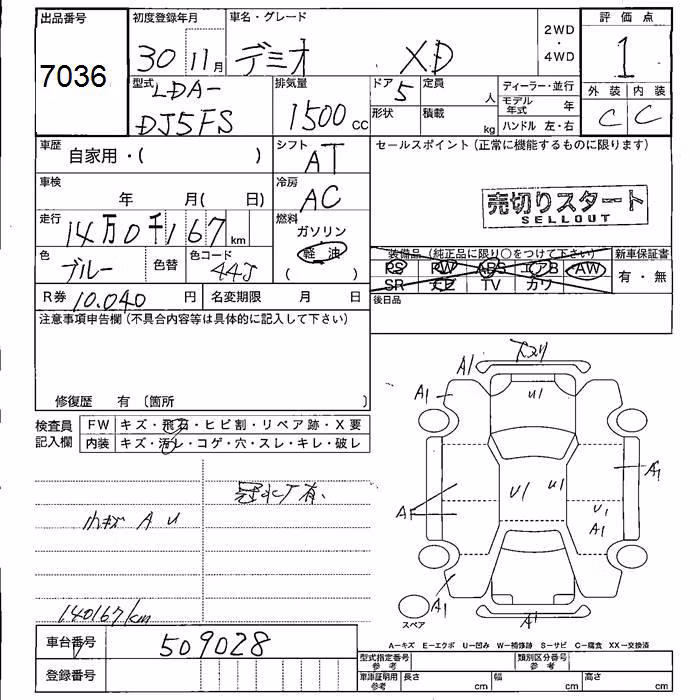 出品番号
7036
初度登録年月
30 11月
車名・グレード
デミオ XD
2WD
・
4WD
評価点
1
外装 内装
C C
型式
LDA-
DJ5FS
排気量
1500 cc
ドア
5
定員
人
形状
積載
kg
ディーラー・並行
モデル年式 年
ハンドル 左・右
車歴
自家用・( )
シフト
AT
セールスポイント(正常に機能するものに限ります)
車検
年 月( 日)
冷房
AC
売切りスタート
SELLOUT
走行
14万0千167 km
燃料
ガソリン
軽油
( )
色
ブルー
色替
色コード
44J
装備品(純正品に限り○をつけて下さい)
PS PW ABS エアB AW
SR ナビ TV カワ
新車保証書
有・無
R券 10.040 円
名変期限 月 日
後日品
注意事項申告欄(不具合内容等は具体的に記入して下さい)
修復歴 有〔箇所 〕
検査員
記入欄
FW キズ・飛石・ヒビ割・リペア跡・X要
内装 キズ・汚レ・コゲ・穴・スレ・キレ・破レ
冠水歴有、
小キズ A U
140167km
A1
A1
U1
U1
U1
A1
A1
U1
A1
A1
A1
スペア
車台番号
509028
登録番号
A―キズ E―エクボ U―凹み W―補修跡 S―サビ C―腐食 XX―交換済
型式指定番号
参考
類別区分番号
参考
車庫証明用
参考
長さ cm
幅 cm
高さ cm